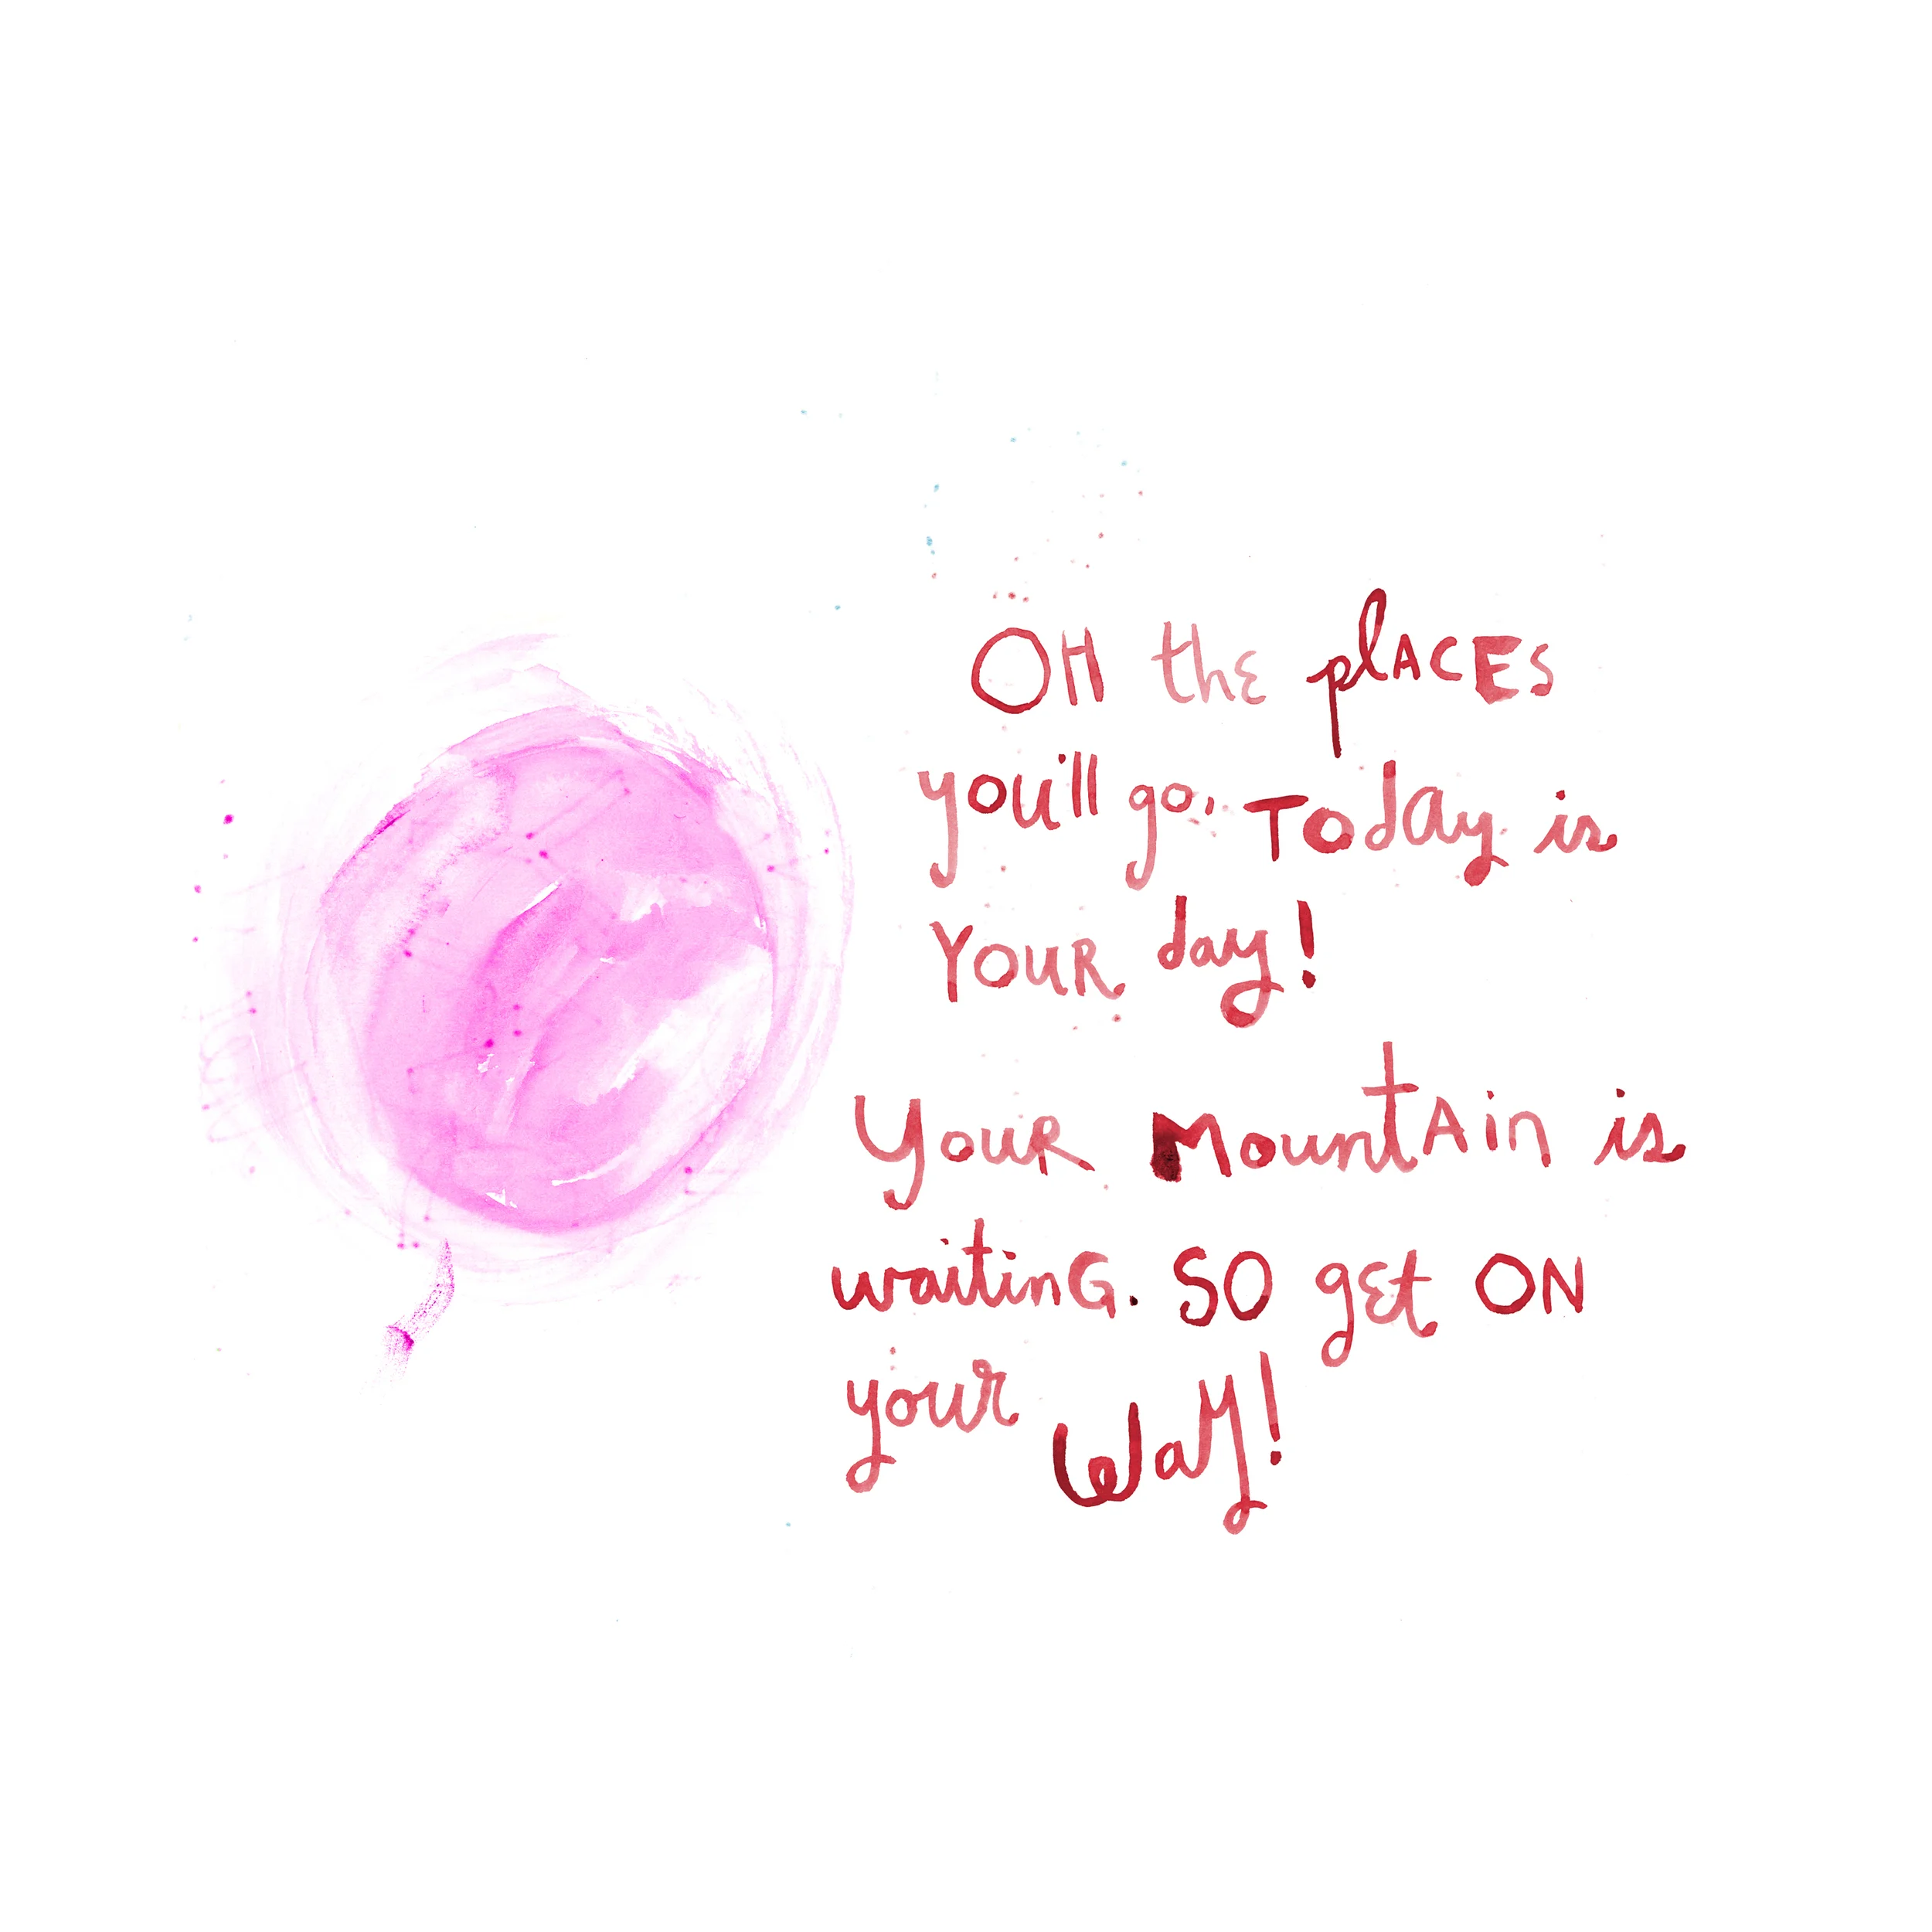 OH the plACES
you'll go. TOdAy is
YOUR day!
YOUR MountAin is
waitinG. SO gEt ON
your WaY!